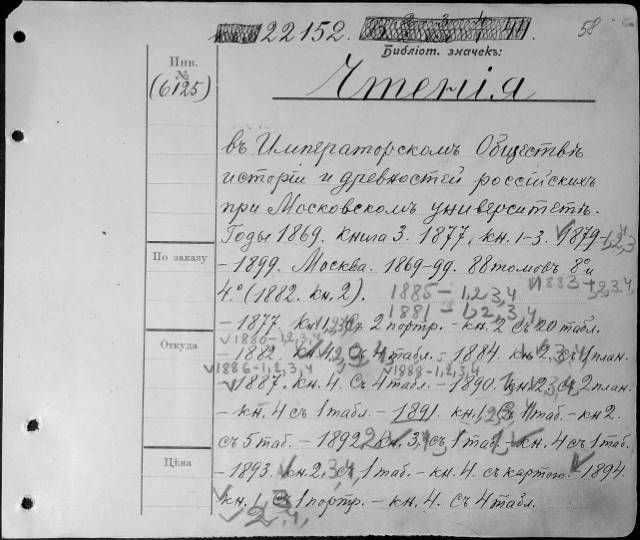 22152.
58
Библіот. значекъ:
Инв. №
(6125)
Чтенія
въ Императорскомъ Обществѣ
исторіи и древностей россійскихъ
при Московскомъ университетѣ.
Годы 1869. книга 3. 1877. кн. 1-3. 1879-1,2,3
По заказу
- 1899. Москва. 1869-99. 88 томовъ 8° и
4° (1882. кн. 2). 1885 - 1,2,3,4 1883 - 1,2,3,4.
1881 - 1,2,3,4.
- 1877. кн. 1, съ 2 портр. - кн. 2 съ 20 табл.
1880-1,2,3,4
Откуда
- 1882. кн. 1,2,3, съ 4 табл. - 1884. кн. 2,3, съ 1 план.
1886-1,2,3,4 1888-1,2,3,4
- 1887. кн. 4. съ 4 табл. - 1890. кн. 2,3, съ 2 план.
- кн. 4 съ 1 табл. - 1891. кн. 1,2,3, съ 1 табл. - кн 2.
съ 5 таб. - 1892. кн. 3, съ 1 таб. - кн. 4 съ 1 таб.
Цѣна
- 1893. кн. 2,3,4 съ 1 таб. - кн. 4. съ картою. - 1894.
кн. 1, съ 1 портр. - кн. 4. съ 4 табл.
2,3,4,